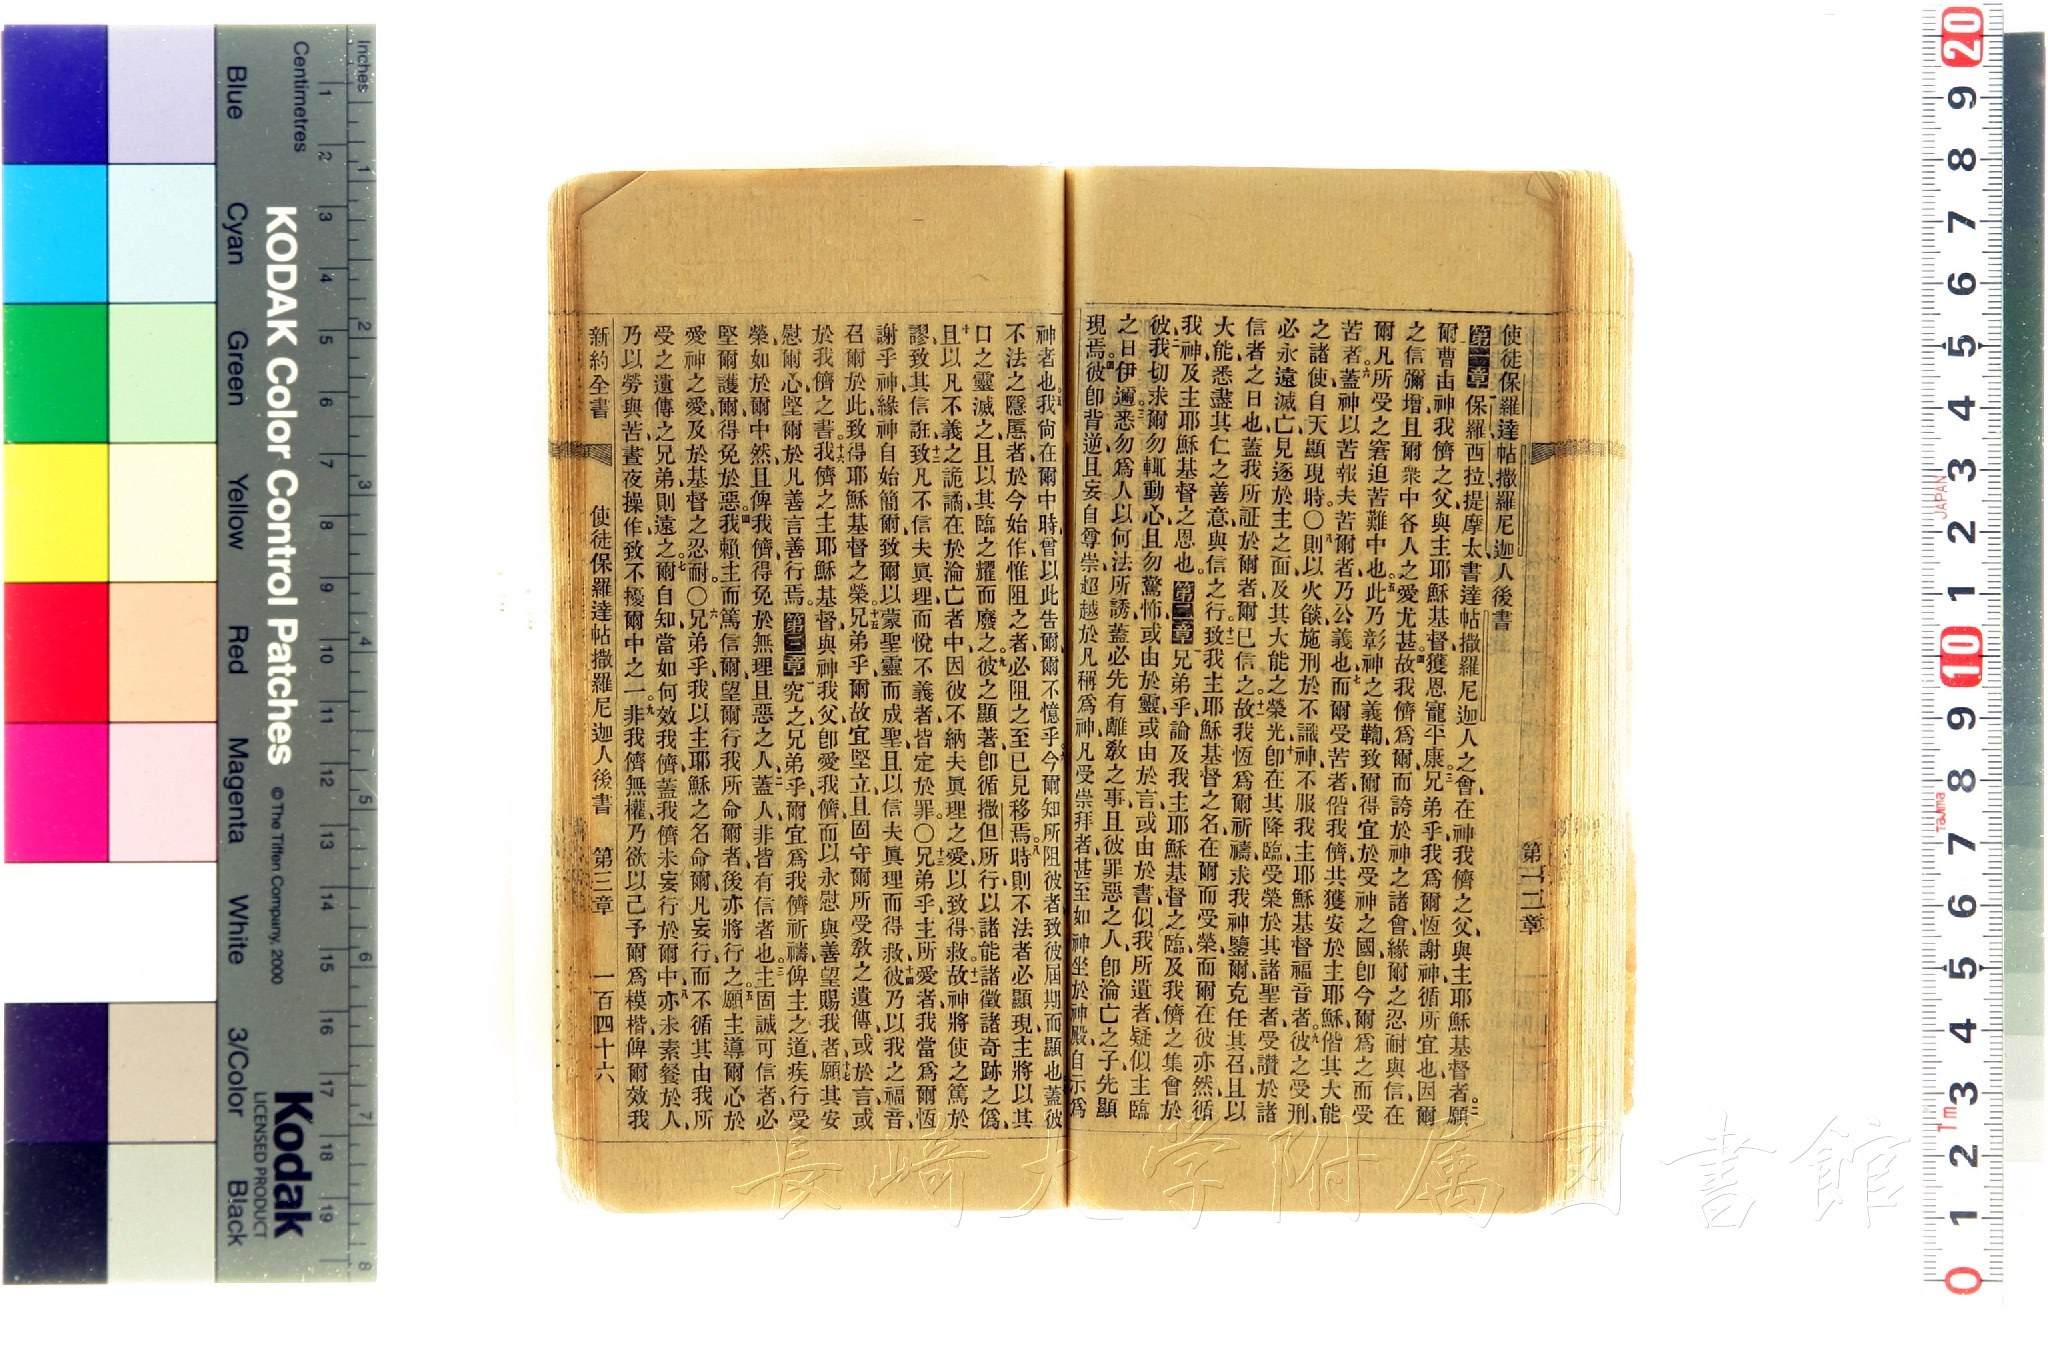 使徒保羅達帖撒羅尼迦人後書
第一章 保羅西拉提摩太書達帖撒羅尼迦人之會在神我儕之父與主耶穌基督者願
爾曹由神我儕之父與主耶穌基督獲恩寵平康兄弟乎我爲爾恆謝神循所宜也因爾
之信彌增且爾衆中各人之愛尤甚故我儕爲爾而誇於神之諸會緣爾之忍耐與信在
爾凡所受之窘迫苦難中也此乃彰神之義鞫致爾得宜於受神之國卽今爾爲之而受
苦者蓋神以苦報夫苦爾者乃公義也而爾受苦者偕我儕共獲安於主耶穌偕其大能
之諸使自天顯現時○則以火燄施刑於不識神不服我主耶穌基督福音者彼之受刑
必永遠滅亡見逐於主之面及其大能之榮光卽在其降臨受榮於其諸聖者受讚於諸
信者之日也蓋我所証於爾者爾已信之故我恆爲爾祈禱求我神鑒爾克任其召且以
大能悉盡其仁之善意與信之行致我主耶穌基督之名在爾而受榮而爾在彼亦然循
我神及主耶穌基督之恩也 第二章 兄弟乎論及我主耶穌基督之臨及我儕之集會於
彼我切求爾勿輒動心且勿驚怖或由於靈或由於言或由於書似我所遺者疑似主臨
之日伊邇悉勿爲人以何法所誘蓋必先有離敎之事且彼罪惡之人卽淪亡之子先顯
現焉彼卽背逆且妄自尊崇超越於凡稱爲神凡受崇拜者甚至如神坐於神殿自示爲
第一二章
神者也我尙在爾中時曾以此告爾爾不憶乎今爾知所阻彼者致彼屆期而顯也蓋彼
不法之隱慝者於今始作惟阻之者必阻之至已見移焉時則不法者必顯現主將以其
口之靈滅之且以其臨之耀而廢之彼之顯著卽循撒但所行以諸能諸徵諸奇跡之僞
且以凡不義之詭譎在於淪亡者中因彼不納夫眞理之愛以致得救故神將使之篤於
謬致其信誑致凡不信夫眞理而悅不義者皆定於罪○兄弟乎主所愛者我當爲爾恆
謝乎神緣神自始簡爾致爾以蒙聖靈而成聖且以信夫眞理而得救彼乃以我之福音
召爾於此致得耶穌基督之榮兄弟乎爾故宜堅立且固守爾所受敎之遺傳或於言或
於我儕之書我儕之主耶穌基督與神我父卽愛我儕而以永慰與善望賜我者願其安
慰爾心堅爾於凡善言善行焉 第三章 究之兄弟乎爾宜爲我儕祈禱俾主之道疾行受
榮如於爾中然且俾我儕得免於無理且惡之人蓋人非皆有信者也主固誠可信者必
堅爾護爾得免於惡我賴主而篤信爾望爾行我所命爾者後亦將行之願主導爾心於
愛神之愛及於基督之忍耐○兄弟乎我以主耶穌之名命爾凡妄行而不循其由我所
受之遺傳之兄弟則遠之爾自知當如何效我儕蓋我儕未妄行於爾中亦未素餐於人
乃以勞與苦晝夜操作致不擾爾中之一非我儕無權乃欲以己予爾爲模楷俾爾效我
新約全書 使徒保羅達帖撒羅尼迦人後書 第三章 一百四十六
Inches
Centimetres
KODAK Color Control Patches
© The Tiffen Company, 2000
Kodak
LICENSED PRODUCT
Blue
Cyan
Green
Yellow
Red
Magenta
White
3/Color
Black
1 2 3 4 5 6 7 8 9 10 11 12 13 14 15 16 17 18 19
1 2 3 4 5 6 7 8
20 9 8 7 6 5 4 3 2 1 10 9 8 7 6 5 4 3 2 1 0
JAPAN
Tajima
Tm
長崎大学附属図書館